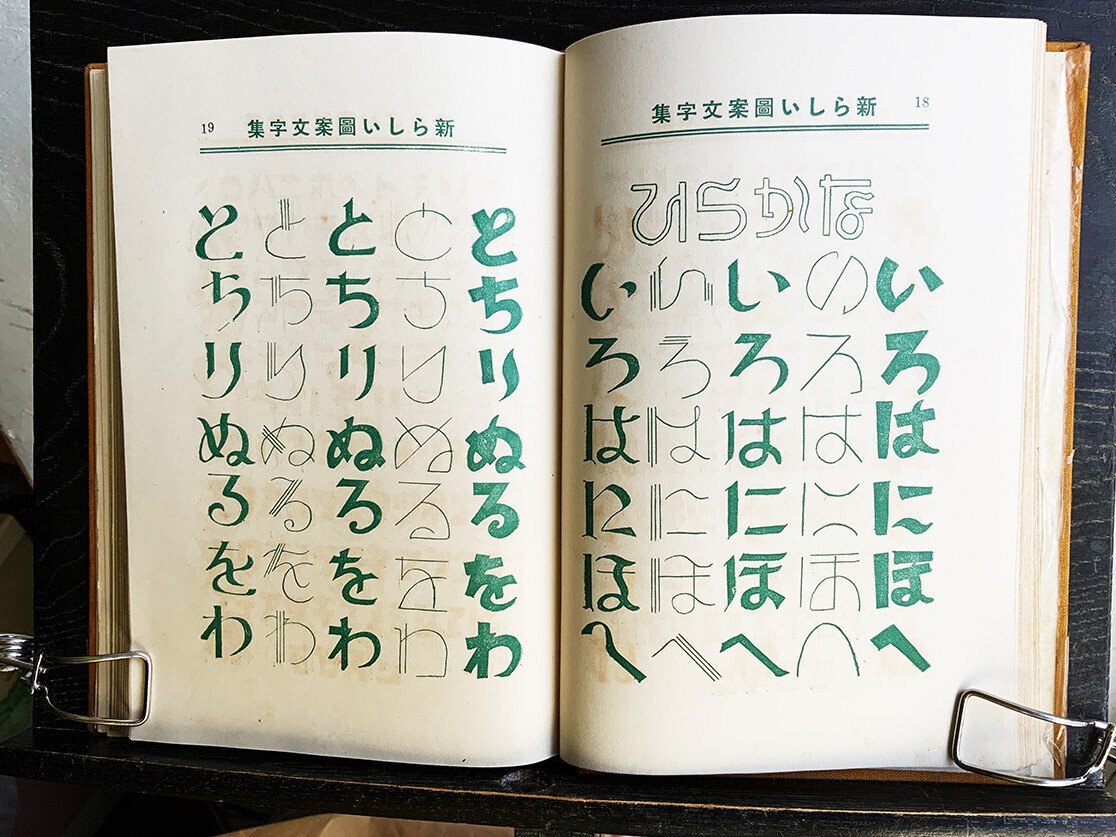 18
新らしい圖案文字集
ひらかな
いろはにほへ
いろはにほへ
いろはにほへ
いろはにほへ
いろはにほへ
19
新らしい圖案文字集
とちりぬるをわ
とちりぬるをわ
とちりぬるをわ
とちりぬるをわ
とちりぬるをわ